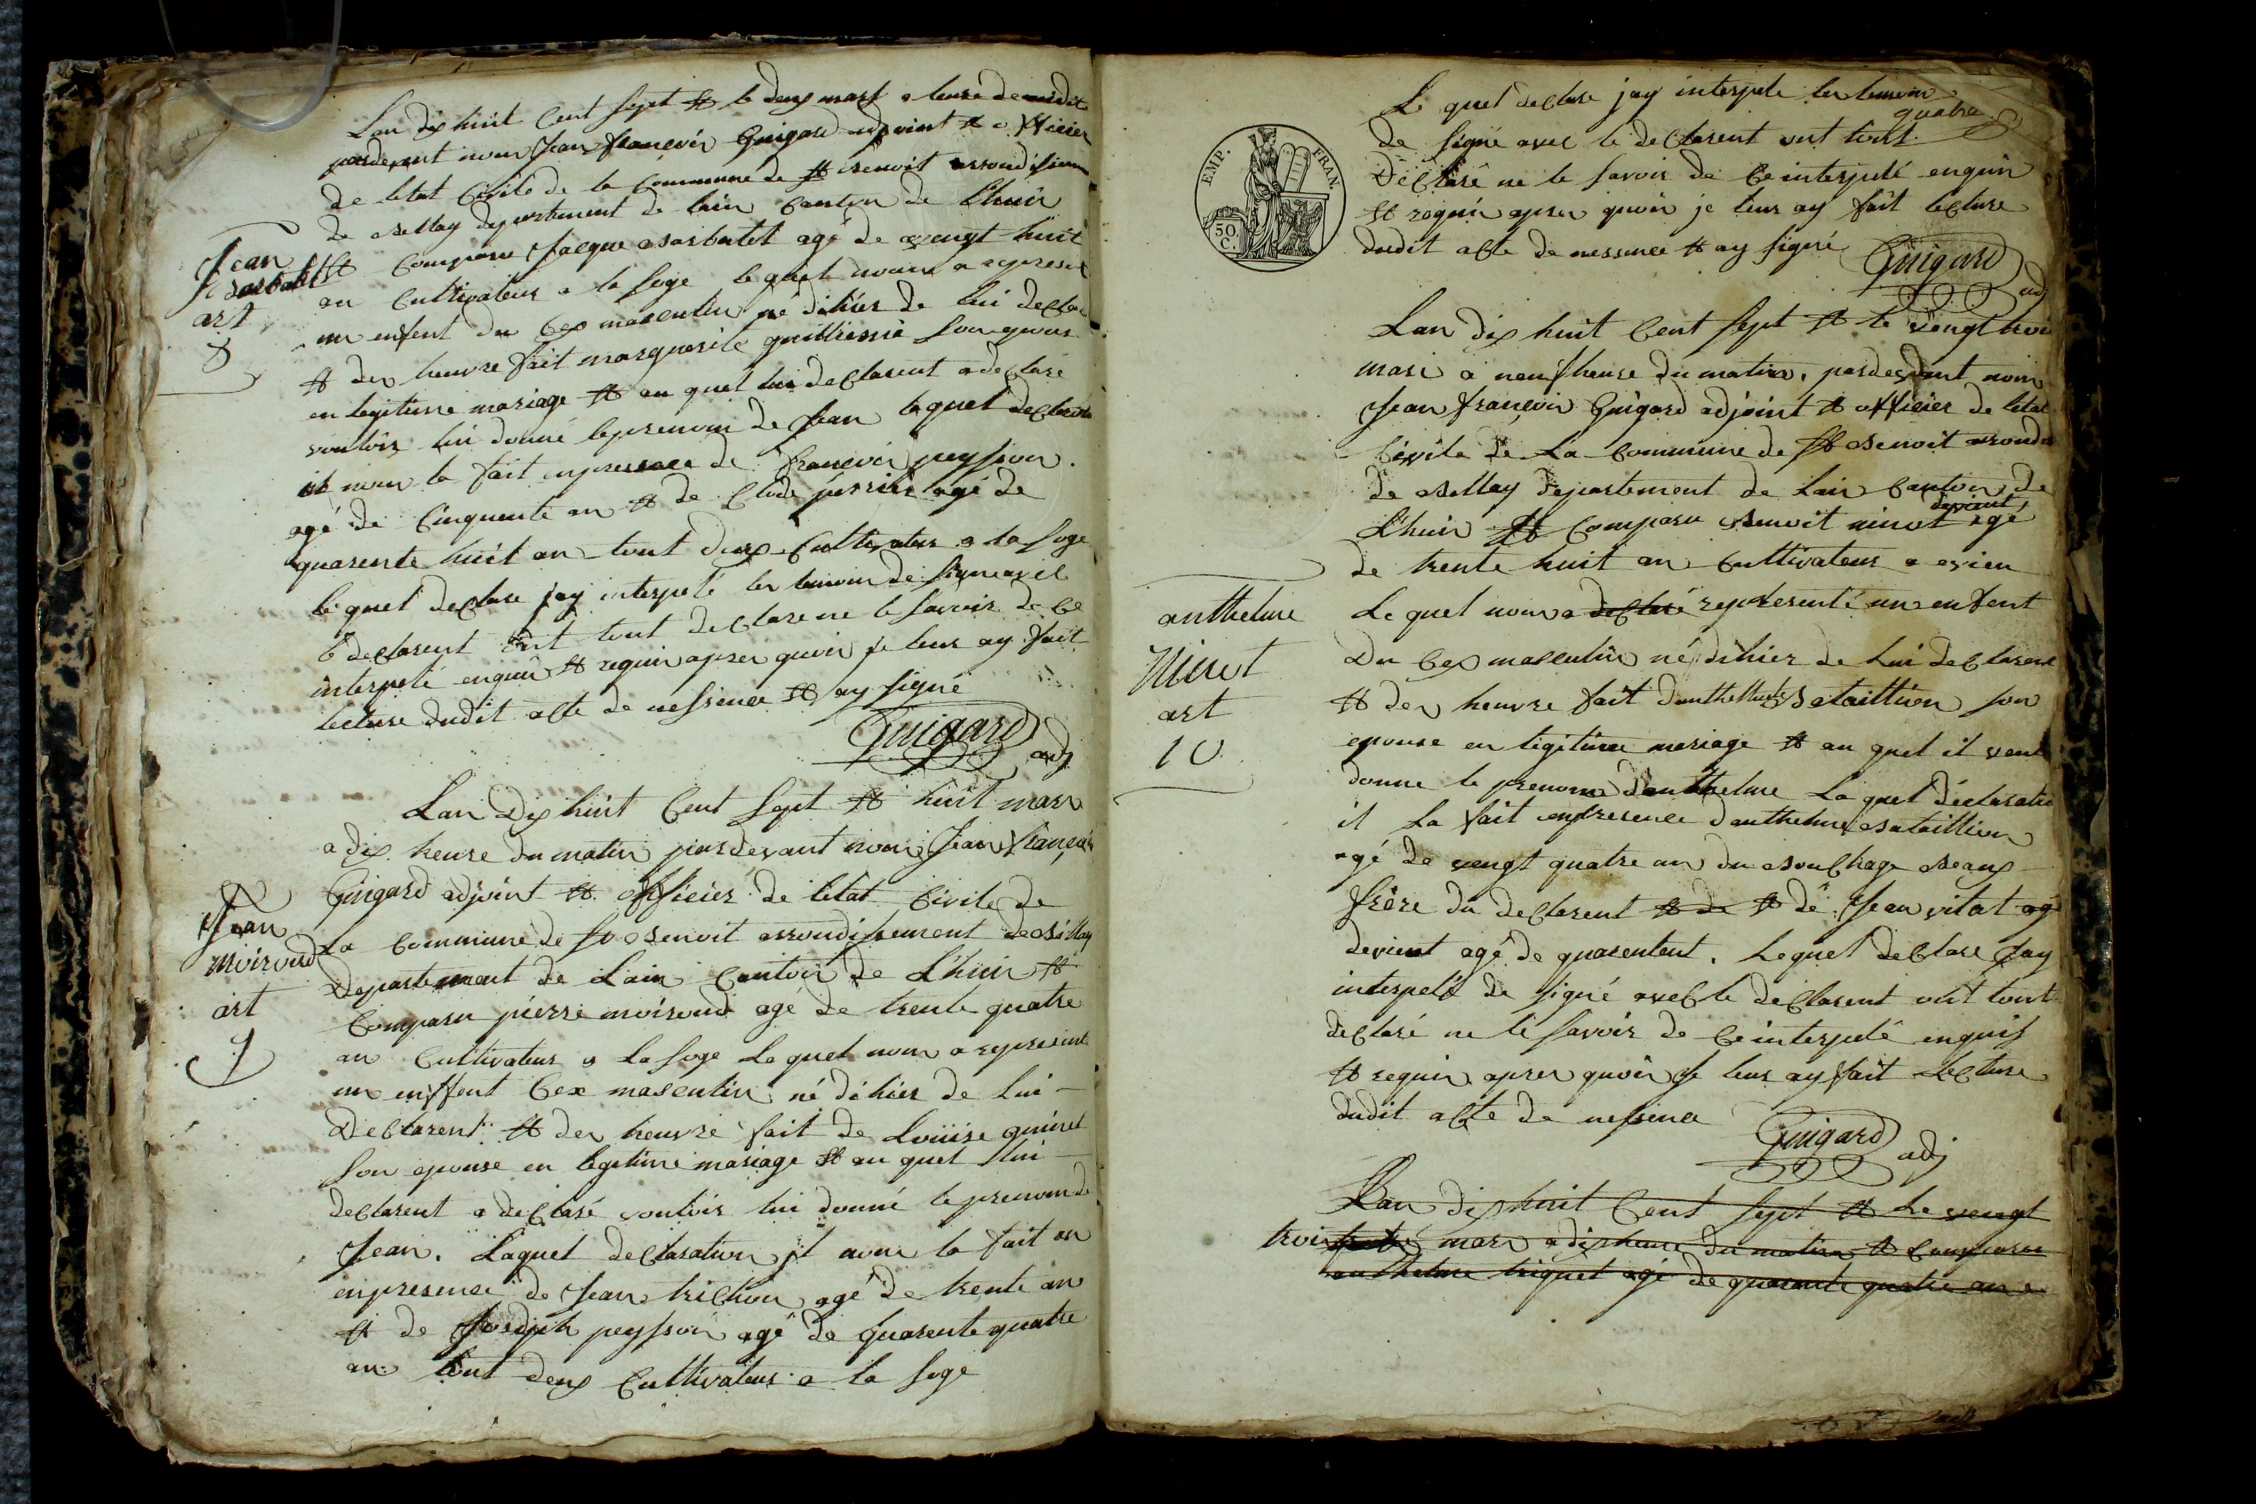 Lan dix huit Cent Sept & le deux mars a leure de midit
pardevant nous Jean francois Guigard adjoint & officier
de letat Civile de la Commune de St Benoit arrondissem
de Bellay departement de lain Canton de Lhuis
& Comparu Jacque Barbatet agé de vengt huit
an Cultivateur a la Soge lequel nous a represent
un enfent du Cex masculin né dihier de lui declar
& den heuvre fait marguerite guillermé Son epouse
en legitime mariage & au quel lui declarent a declaré
vouloir lui donné le prenom de Jean laquel declarat
il nous la fait enpresence de francois peysson
agé de Cinquente an & de Clode perrier agé de
quarente huit an tout deux Cultivateur a la Soge
lequel declare jay interpelé les temoin de Signe avec
le declarent ont tout declare ne le Savoir de Ce
interpelé enquis & requis apres quoir je leur ay fait
lecture dudit acte de nessence & ay Signé
Guigard adj
Jean
Barbatet
art
8
Lan Dix huit Cent Sept & huit mars
a dix heure du matin pardevant nous Jean françois
Guigard adjoint & officier de letat Civile de
La Commune de St Benoit arrondissement de Billay
departement de Lain Canton de Lhuis &
Comparu pierre moiroud agé de trente quatre
an Cultivateur a La Soge Lequel nous a represent
un enffent Cex masculin né dihier de Lui
Declarent & den heuvre fait de Louise guinet
Son epouse en legitime mariage & au quel Lui
declarent a declaré vouloir lui donné le prenom de
Jean. Laquel declaration jl nous la fait en
enpresence de Jean trichon agé de trente an
& de Josdph peysson agé de quarente quatre
an tout deux Cultivateur a la Soge
Jean
moiroud
art
9
quatre
Le quel declare jay interpele les temoin
de Signé avec le declarent ont tout
Déclaré ne le Savoir de Ce interpelé enquis
& requis apres quoir je leur ay fait lecture
dudit acte de nessence & ay Signé
Guigard adj
EMP. FRAN.
50. C.
Lan dix huit Cent Sept & le vengt trois
mars a neuf heure du matin, pardevant nous
Jean françois Guigard adjoint & officier de letat
Civile de La Commune de St Benoit arrondi
de Bellay departement de Lain Canton de
Lhuis & Comparu Benoit ninet devient agé
de trente huit an Cultivateur a evieu
Le quel nous a declaré representé un enfent
Du Cex masculin né dihier de Lui declarent
& den heuvre fait danthelmete Bataillion Son
epouse en legitime mariage & au quel il veut
donne le prenom danthelme Laquel déclaratio
il La fait enpresence danthelme Bataillion
agé de vengt quatre an du Bouchage Beaux
frère du declarent & de & de Jean vitat agé
devient agé de quarentent. Lequel declare Jay
interpelé de Signé avec le declarent ont tout
declaré ne le Savoir de Ce interpelé enquis
& requis apres quoir Je leur ay fait Lecture
dudit acte de nessence
Guigard adj
anthelme
Ninet
art
10
Lan dix huit Cent Sept & le vengt
trois mars a dix heure du matin & Comparu
anthelme triquet agé de quarante quatre an a